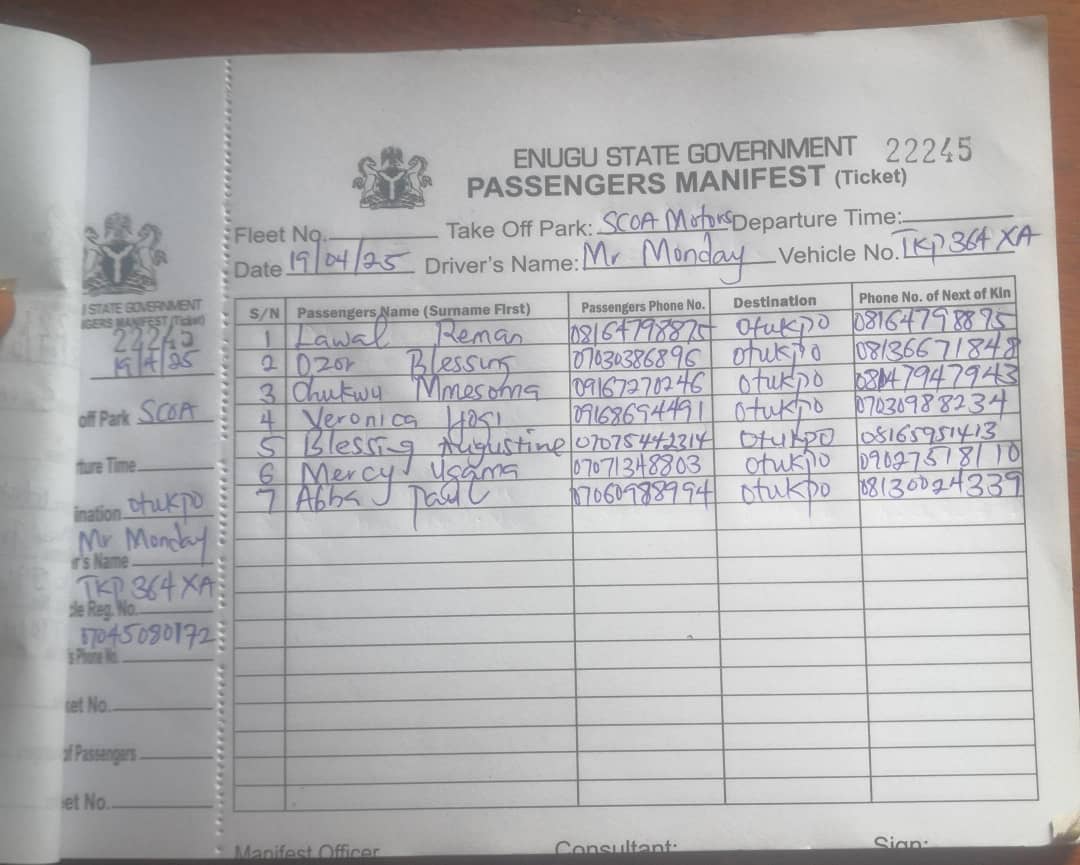 ENUGU STATE GOVERNMENT 22245
PASSENGERS MANIFEST (Ticket)
Fleet No. Take Off Park: SCOA Motors Departure Time:
Date 19/04/25 Driver's Name: Mr Monday Vehicle No. TKP 364 XA
S/N Passengers Name (Surname First) Passengers Phone No. Destination Phone No. of Next of Kin
1 Lawal Reman 08164798875 Otukpo 08164798875
2 Ozor Blessing 07030386896 Otukpo 08136671848
3 Chukwu Mmesoma 09167270246 Otukpo 08147947943
4 Veronica 09168694491 Otukpo 07030988234
5 Blessing Augustine 07075442314 Otukpo 08165951413
6 Mercy Usama 07071348803 Otukpo 09027518110
7 Abba Paul 07060988994 Otukpo 08130024339
Manifest Officer Consultant: Sign:
STATE GOVERNMENT
GERS MANIFEST (Ticket)
22245
19/4/25
off Park SCOA
ture Time
ination Otukpo
Mr Monday
r's Name
TKP 364 XA
le Reg. No.
07045080172
s Phone No.
ket No.
of Passengers
eet No.